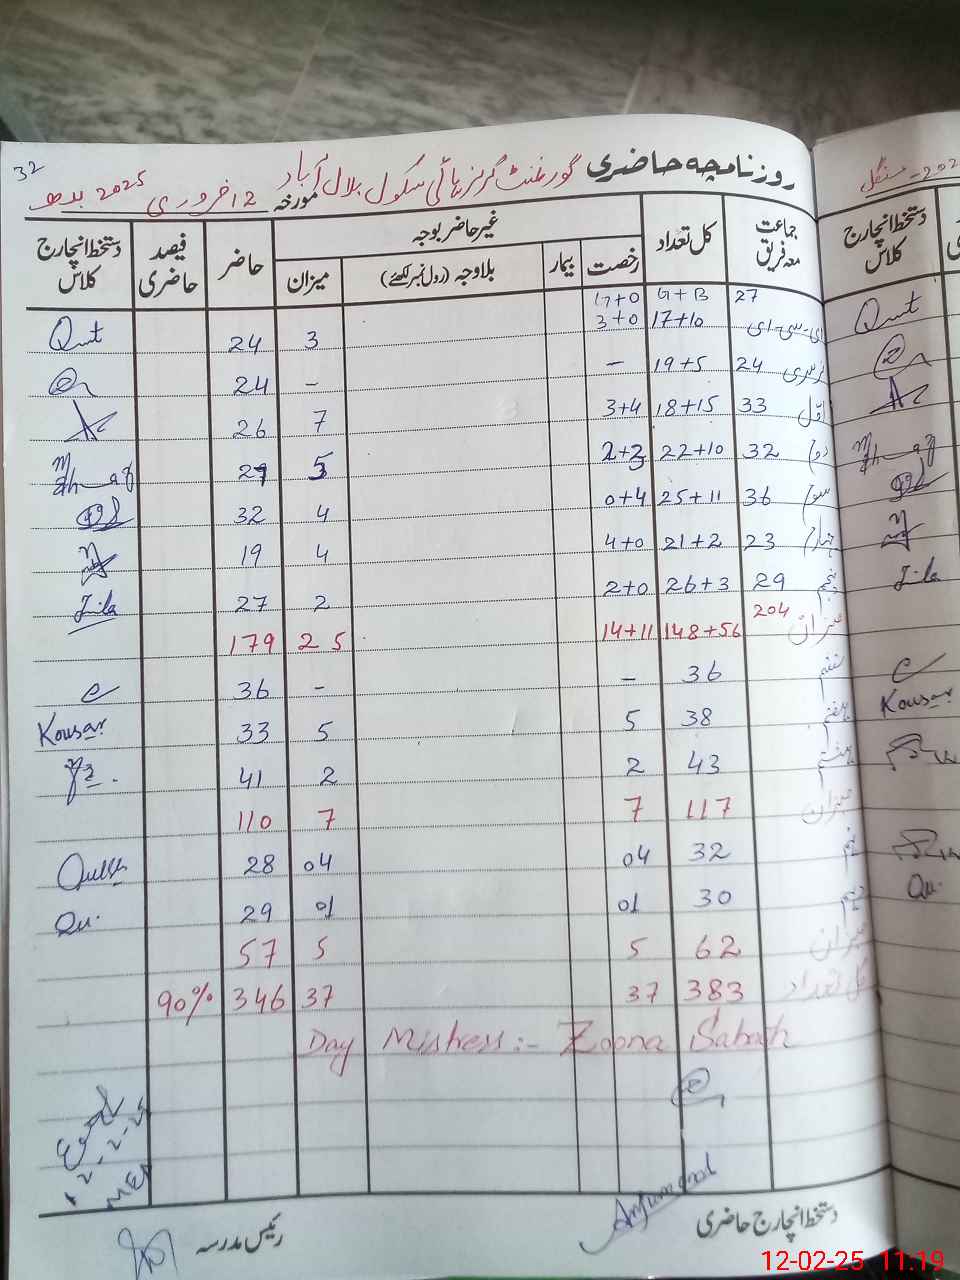 32
روزنامچہ حاضری گورنمنٹ گرلز ہائی سکول بلال آباد مورخہ 12 فروری 2025 بدھ
جماعت معہ فریق کل تعداد غیر حاضر بوجہ حاضر فیصد حاضری دستخط انچارج کلاس
رخصت بیمار بلاوجہ (رول نمبر لکھئے) میزان
27 G+B G+0
ای-سی-ای 17+10 3+0 3 24
نرسری 24 19+5 - - 24
اول 33 18+15 3+4 7 26
دوم 32 22+10 2+3 5 27
سوم 36 25+11 0+4 4 32
چہارم 23 21+2 4+0 4 19
پنجم 29 26+3 2+0 2 27
میزان 204 148+56 14+11 25 179
ششم 36 - - 36
ہفتم 38 5 5 33 Kousar
ہشتم 43 2 2 41
میزان 117 7 7 110
نہم 32 04 04 28
دہم 30 01 01 29 Qu.
میزان 62 5 5 57
کل تعداد 383 37 37 346 90%
Day Mistress:- Zoona Sabaah
12-2-25
دستخط انچارج حاضری رئیس مدرسہ
دستخط انچارج کلاس
Kousar
Qu.
12-02-25 11:19